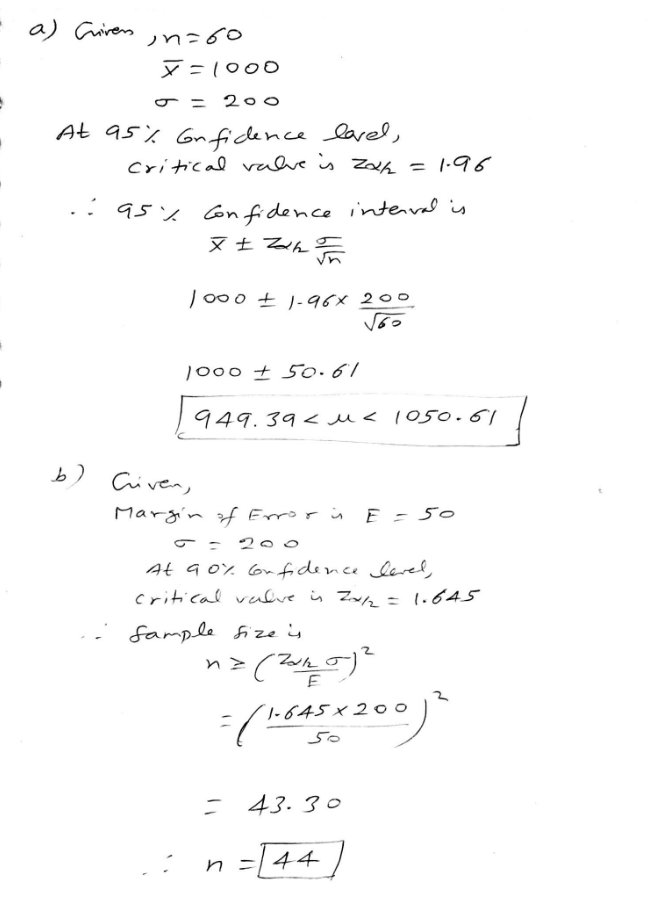 a) Given, n=60
x̄ = 1000
σ = 200
At 95% Confidence level,
critical value is Zα/2 = 1.96
∴ 95% Confidence interval is
x̄ ± Zα/2 σ/√n
1000 ± 1.96× 200/√60
1000 ± 50.61
949.39 < μ < 1050.61
b) Given,
Margin of Error is E = 50
σ = 200
At 90% Confidence level,
critical value is Zα/2 = 1.645
∴ Sample size is
n ≥ (Zα/2 σ/E)²
= (1.645×200/50)²
= 43.30
∴ n = 44